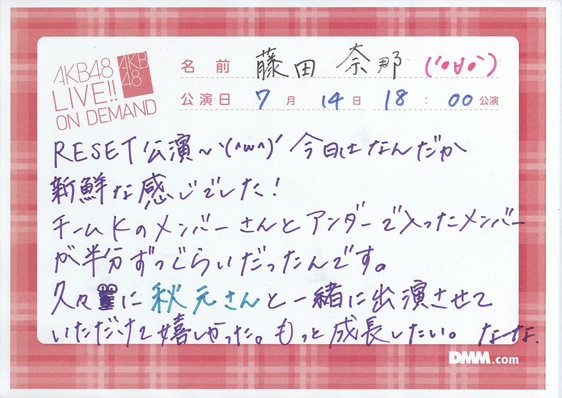 AKB48
LIVE!!
ON DEMAND
AKB
48
名前 藤田 奈那 ('θ∀θ`)
公演日 7月 14日 18:00公演
RESET公演〜ヽ(^ω^)ノ 今日はなんだか
新鮮な感じでした!
チームKのメンバーさんとアンダーで入ったメンバー
が半分ずつぐらいだったんです。
久々に秋元さんと一緒に出演させて
いただけて嬉しかった。もっと成長したい。 なな.
DMM.com